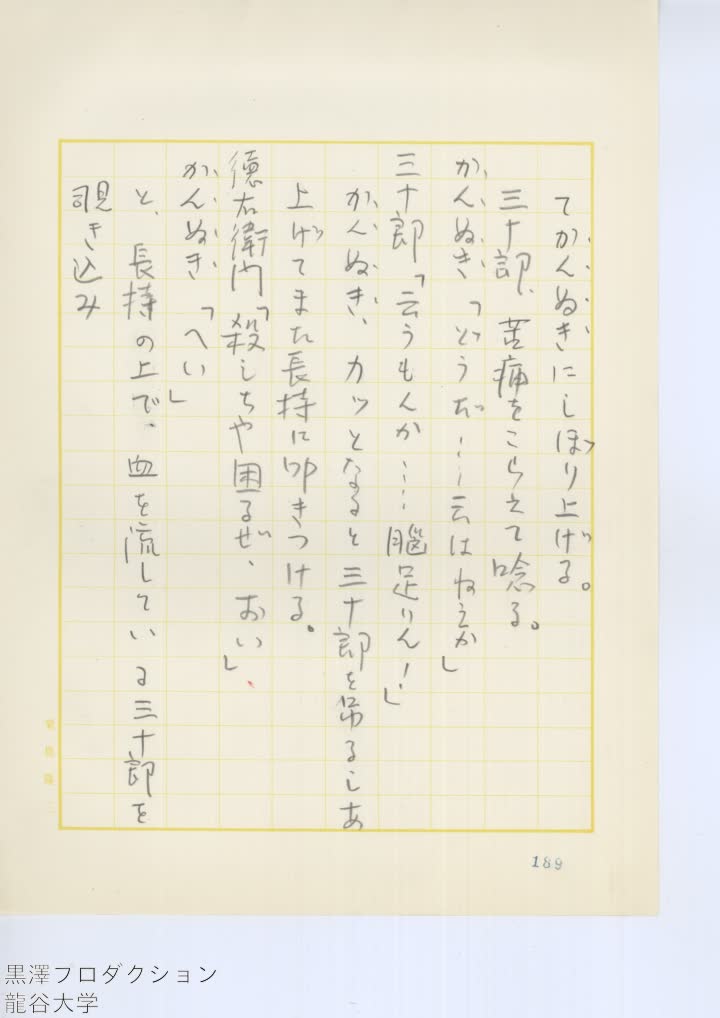 てかんぬきにしぼり上げる。
三十郎、苦痛をこらえて唸る。
かんぬき「どうだ……云はねえか」
三十郎「云うもんか……脳足りん！」
かんぬき、カッとなると三十郎を吊るしあ
上げてまた長持に叩きつける。
徳右衛門「殺しちや困るぜ、おい」、
かんぬき「へい」
と、長持の上で、血を流している三十郎を
覗き込み
189
黒澤プロダクション
龍谷大学